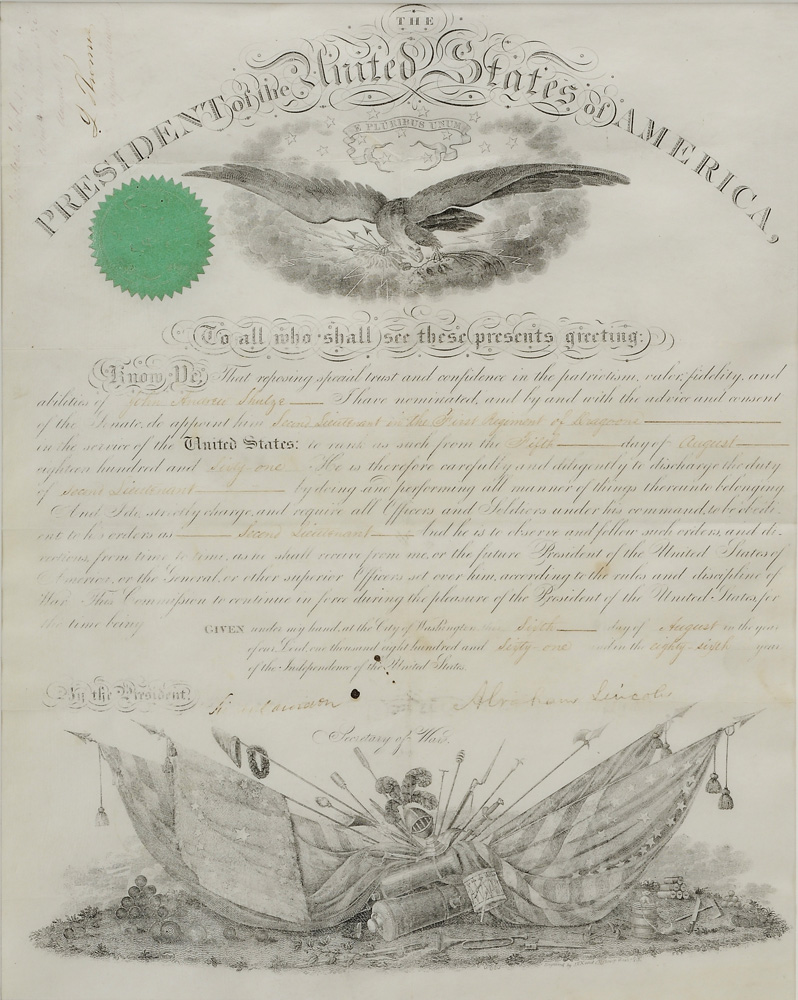 THE
PRESIDENT of the United States of AMERICA,
E PLURIBUS UNUM
To all who shall see these presents greeting:
Know Ye, That reposing special trust and confidence in the patriotism, valor, fidelity, and
abilities of John Andrew Shulze I have nominated, and by and with the advice and consent
of the Senate, do appoint him Second Lieutenant in the First Regiment of Dragoons
in the service of the United States: to rank as such from the Fifth day of August
eighteen hundred and sixty one He is therefore carefully and diligently to discharge the duty
of Second Lieutenant by doing and performing all manner of things thereunto belonging
And I do strictly charge, and require all Officers and Soldiers under his command, to be obedi-
ent to his orders as Second Lieutenant And he is to observe and follow such orders, and di-
rections, from time to time, as he shall receive from me, or the future President of the United States of
America, or the General, or other superior Officers set over him, according to the rules and discipline of
War. This Commission to continue in force during the pleasure of the President of the United States, for
the time being
GIVEN under my hand, at the City of Washington, this Sixth day of August in the year
of our Lord, one thousand eight hundred and sixty-one and in the eighty-sixth year
of the Independence of the United States.
By the President,
Abraham Lincoln
Secretary of War.